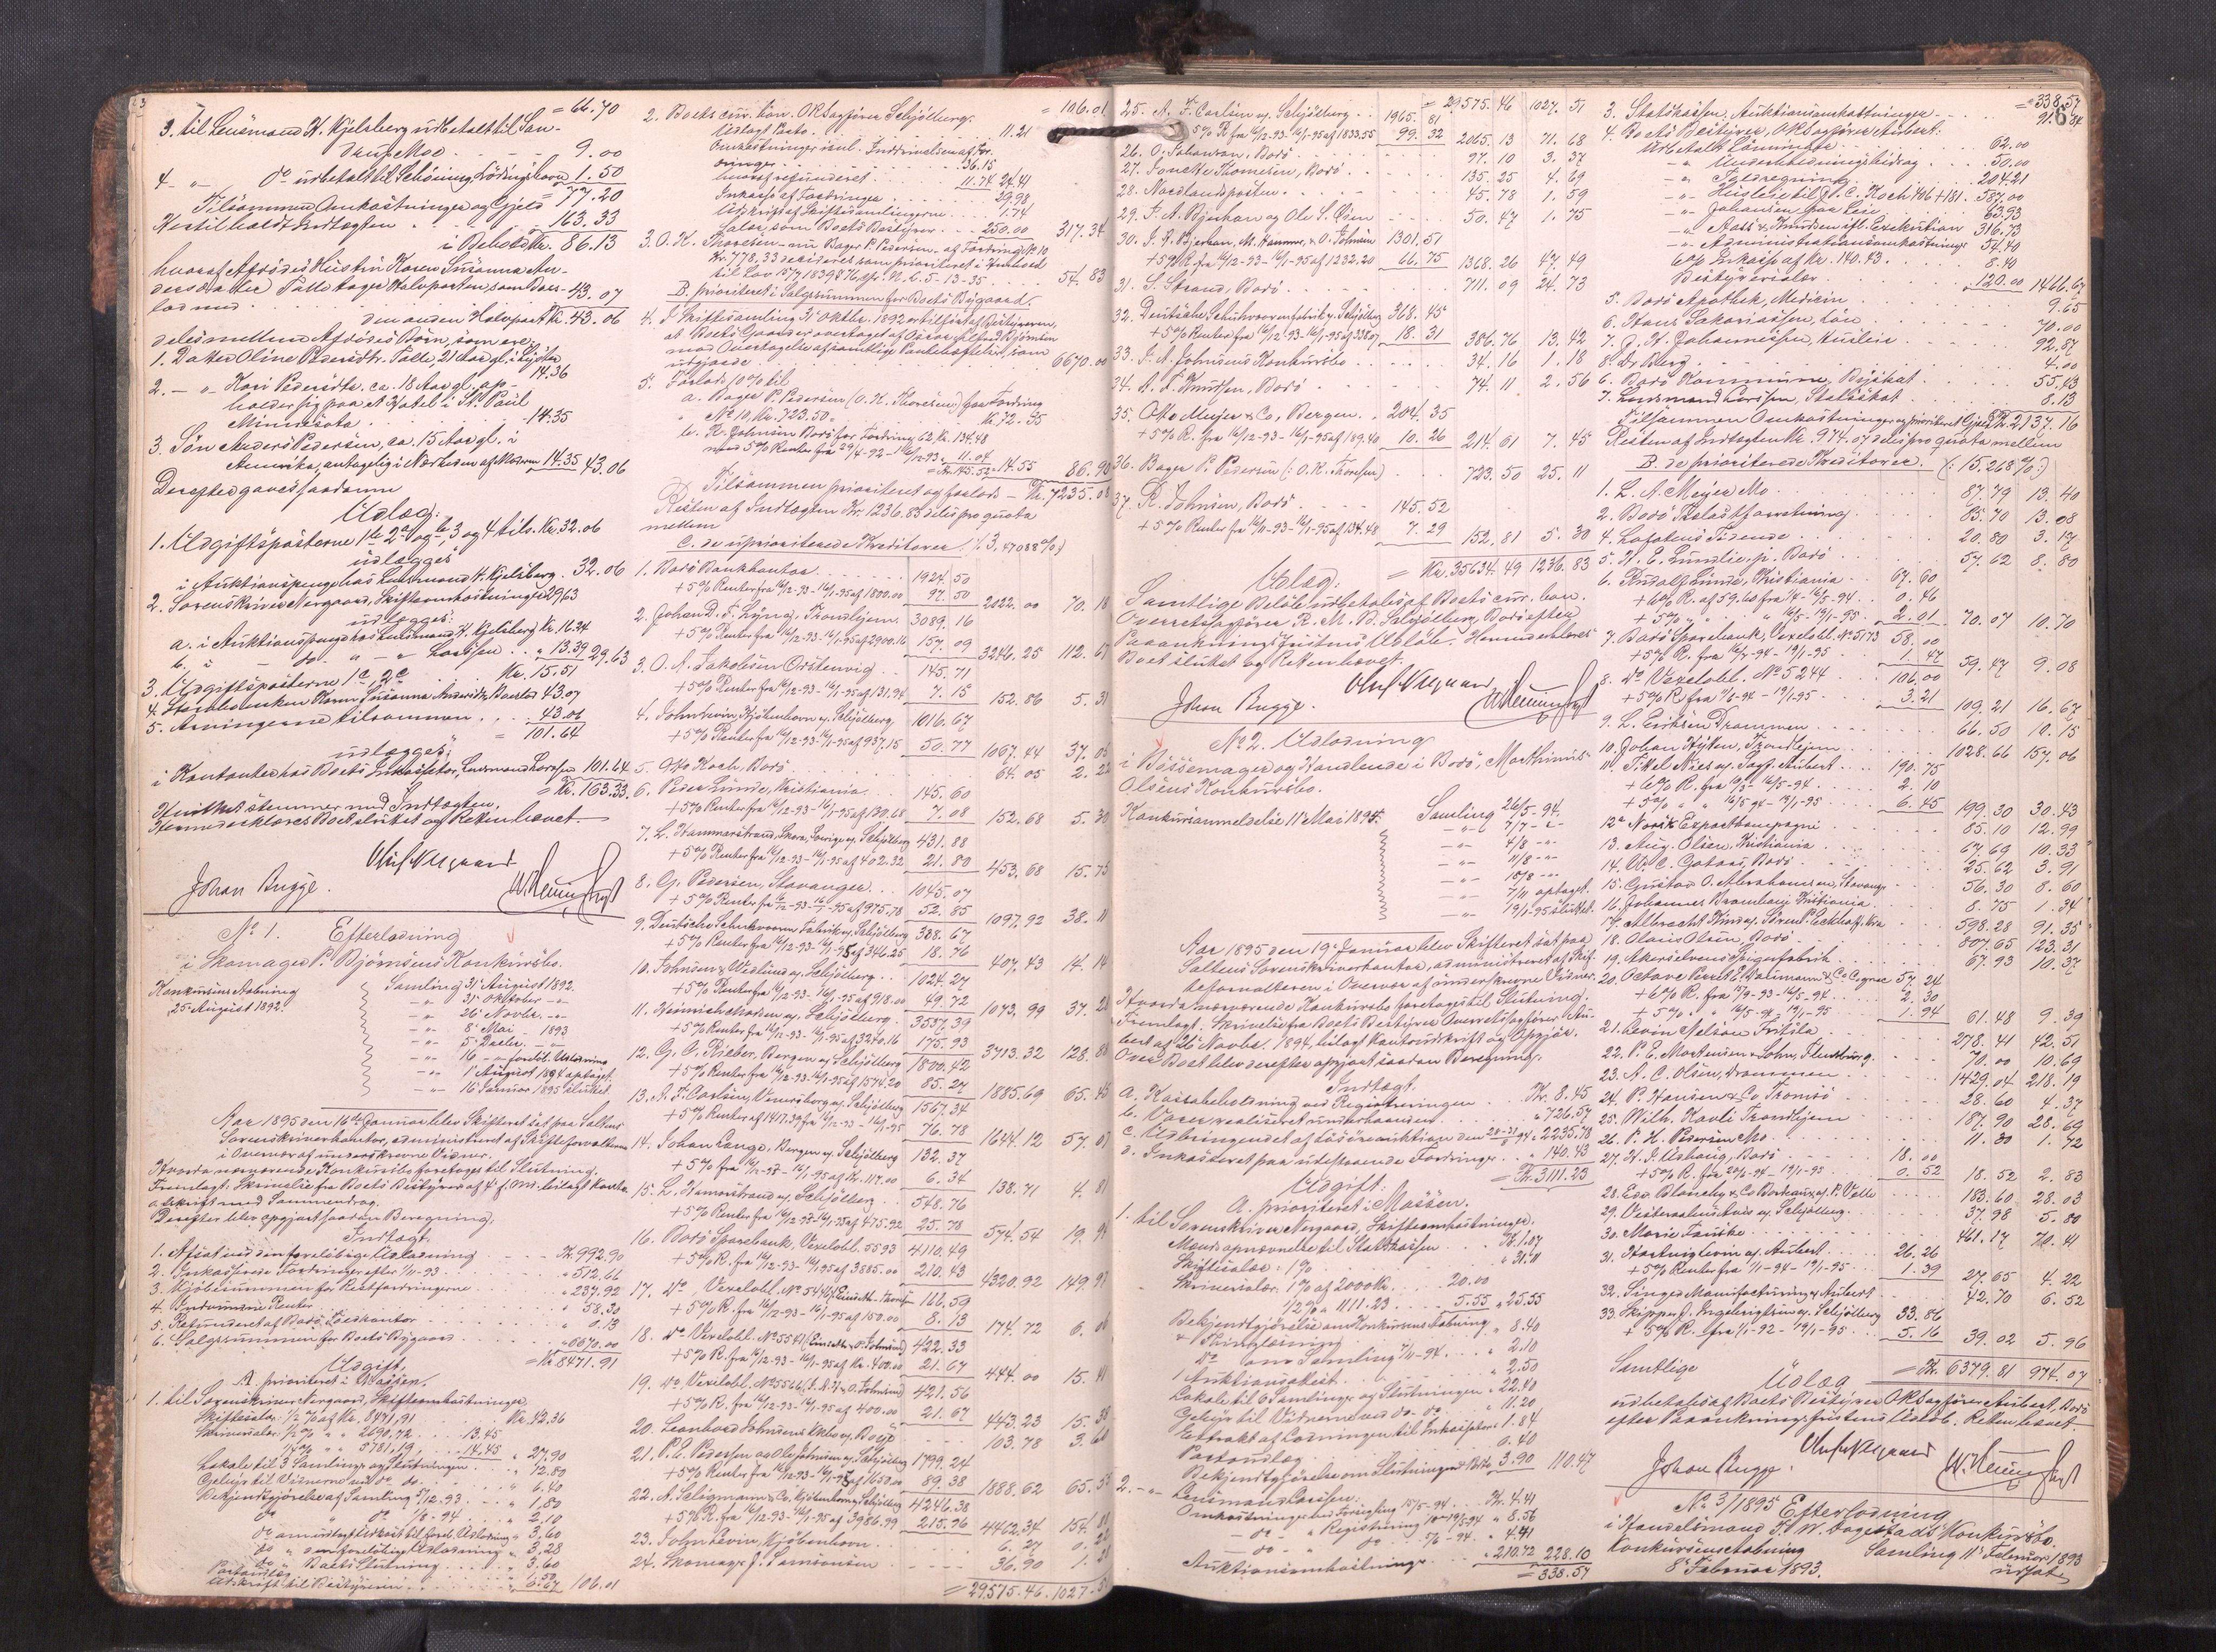 = 66.70
3. til Lensmand H. Kjelsberg udbetalt til San-
drup Moe 9.00
4 - " - do udbetalt til Schöning, Lödingshavn 1.50
= 77.20
Tilsammen Omkostninger og Gjeld
Heri tilholdt Indtægten 163.33
i Behold Kr. 86.13
hvoraf Afdödes Hustru Karen Susanna An-
dersdatter tager Halvparten, som Boes- 43.07
lod med
den anden Halvpart Kr. 43.06
deles mellem Afdödes Börn, som ere:
1. Datter Oline Pedersdtr. 21 Aar gl. i 14.36
2. - " - Kari Pedersdtr. ca. 18 Aar gl. op-
holder sig paa et Hotel i St. Paul
Minnesota 14.35
3. Sön Anders Pedersen, ca. 15 Aar gl. i
Amerika, antagelig i Nærheden af Moderen 14.35 43.06
Derefter gaves saadant
Udlæg:
1. Udgiftsposterne 1, 2, 3 og 4 tils. Kr. 32.06
udlægges
i Auktionspenge hos Lensmand H. Kjelsberg 32.06
2. Sorenskriver Nergaard, Skifteomkostninger 29.63
udlægges:
a. i Auktionspenge hos Lensmand H. Kjelsberg Kr. 16.24
b. i do. " - " Larssen " 13.39 29.63
3. Udgiftsposterne Kr. 15.51
4. Sterbboenken Karen Susanna Andersdtr. Boeslod 43.07
5. Arvingerne tilsammen 43.06
= 101.64
udlægges:
i Kontanter hos Boets Inkassator, Lensmand Larssen 101.64
= Kr. 163.33.
Hvilket stemmer med Indtægten.
Hermed erklæres Boet sluttet og Retten hævet.
Johan Bugge.
No 1. Efterlodning
i Skomager P. Björnsens Konkursbo.
Konkursens Aabning
25 August 1892.
Samling 31 August 1892.
- " - 31 Oktober - " -
- " - 26 Novbr. - " -
- " - 8 Mai - 1893
- " - 5 Decbr. - " -
- " - 16 - " - forelöb. Udlodning
- " - 1 August 1894 optaget.
- " - 16 Januar 1895 sluttet.
Aar 1895 den 16de Januar blev Skifteret sat paa Saltens
Sorenskriverkontor, administreret af Skifteforvalteren
i Overvær af underskrevne Vidner.
Hvorda nærværende Konkursbo foretoges til Slutning.
Fremlagt Skrivelse fra Boets Bestyrer af 4 f. M. bilagt Konto-
udskrift med Sammendrag.
Derefter blev opgjort saadan Beregning:
Indtægt.
1. Afsat ved den foreløbige Udlodning Kr. 992.90
2. Inkasserede Fordringer efter 1/11-93 " 512.66
3. Kjöbesummen for Restfordringerne " 237.92
4. Indvundne Renter " 58.30
5. Refunderet af Bodö Foedkontor " 0.13
6. Salgssummen for Boets Bygaard " 6670.00
= Kr. 8471.91
Udgift.
A. prioriteret i Massen.
1. til Sorenskriver Nergaard, Skifteomkostninger,
Skiftesalær 1/2 % af Kr. 8471,91 Kr. 42.36
Skriversalær 1/2 % " " 2690,72 13.45
1/4 % " " 5781,19 14.45 " 27.90
Lokale til 3 Samlinger og Slutningen " 12.80
Gebyr til Vidnerne ved do do. " 6.40
Bekjendtgjörelse af Samling 5/12.93 " 1.80
do " do 1/8-94 " 2.10
do om udlagt Udkast til forel. Udlodning " 3.60
do " den foreløbige Udlodning " 3.28
do " Boets Slutning " 3.60
Portoudlæg " 1.50
Udskrift til Bestyreren " 6.67 106.01
= 106.01
2. Boets cur. bon. OR Sagförer Schjölberg.
Udlagt Porto 11.21
Omkostninger isul. Inddrivelsen af For-
dringer 36.15
hvoraf refunderet 11.74 24.41
Inkasso af Fordringer 29.98
Udskrift af Skiftesamlingerne 1.74
Salær som Boets Bestyrer 250.00 317.34
3. O. K. Thoresen - nu Bager P. Pedersen - af Fordring No 10
Kr. 778,33 decideret som prioriteret i Henhold
til Lov 15/7 1839 § 76, cfr. N. L. 5-13-35 54.83
B. prioriteret i Salgssummen for Boets Bygaard.
4. I Skiftesamling 31 Oktbr. 1892 er tilført af Bestyreren,
at Boets Gaard er overtaget af Oscar Björnsen
mod Overtagelse af samtlige Pantehæftelser, som
udgjorde 6670.00
5. Forlods 10 % til
a. Bager P. Pedersen (O. K. Thoresen) for Fordring
No 10 Kr. 723.50 Kr. 72.35
b. R. Johnsen Bodö for Fordring 62, Kr. 134.48
med 5 % Renter fra 29/4-92-16/12-93 " 11.04
= Kr. 145.52 " 14.55 86.90
Tilsammen prioriteret og forlods - Kr. 7235.08
Resten af Indtægten Kr. 1236.83 deles pro quota
mellem
C. de uprioriterede Kreditorer (: 3,47088 % :)
1. Bodö Bankkontor 1924.50
+ 5 % Renter fra 16/12-93-16/1-95 af 1800.00 97.50 2022.00 70.18
2. Johan D. F. Lyng, Trondhjem 3089.16
+ 5 % Renter fra 16/12-93-16/1-95 af 2900.16 157.09 3246.25 112.67
3. O. A. Jakobsen Örstenvig 145.71
+ 5 % Renter fra 16/12-93-16/1-95 af 131.94 7.15 152.86 5.31
4. John Levin, Kjöbenhavn v. Schjölberg 1016.67
+ 5 % Renter fra 16/12-93-16/1-95 af 937.15 50.77 1067.44 37.05
5. Otto Koch, Bodö 64.05 2.22
6. Peder Lunde, Kristiania 145.60
+ 5 % Renter fra 16/12-93-16/1-95 af 130.68 7.08 152.68 5.30
7. L. Hammarstrand, Skara, Sverige v. Schjölberg 431.88
+ 5 % Renter fra 16/12-93-16/1-95 af 402.32 21.80 453.68 15.75
8. G. Pedersen, Stavanger 1045.07
+ 5 % Renter fra 16/12-93-16/1-95 af 975.78 52.85 1097.92 38.11
9. Deutsche Schuhwaaren Fabrik v. Schjölberg 388.67
+ 5 % Renter fra 16/12-93-16/1-95 af 346.25 18.76 407.43 14.14
10. Johnsen & Weslund v. Schjölberg 1024.27
+ 5 % Renter fra 16/12-93-16/1-95 af 918.00 49.72 1073.99 37.28
11. Heinrich v. Schjölberg 3537.39
+ 5 % Renter fra 16/12-93-16/1-95 af 3240.16 175.93 3713.32 128.88
12. G. C. Rieber, Bergen v. Schjölberg 1800.42
+ 5 % Renter fra 16/12-93-16/1-95 af 1574.20 85.27 1885.69 65.45
13. A. F. Carlsen, Venersborg v. Schjölberg 1567.34
+ 5 % Renter af 1417.39 fra 16/12-93-16/1-95 76.78 1644.12 57.07
14. Johan Lange, Bergen v. Schjölberg 132.37
+ 5 % fra 16/12-93-16/1-95 af Kr. 117.00 6.34 138.71 4.81
15. L. Hamarstrand v. Schjölberg 548.76
+ 5 % Renter fra 16/12-93-16/1-95 af 475.92 25.78 574.54 19.94
16. Bodö Sparebank, Vexelobl. 5593 4110.49
+ 5 % R. fra 16/12-93-16/1-95 af 3885.00 210.43 4320.92 149.97
17. do, Vexelobl. No 5446 166.59
+ 5 % R. fra 16/12-93-16/1-95 af 150.00 8.13 174.72 6.06
18. do Vexelobl. No 5541 422.33
+ 5 % R. fra 16/12-93-16/1-95 af Kr. 400.00 21.67 444.00 15.41
19. do, Vexelobl. No 5566 421.56
+ 5 % R. fra 16/12-93-16/1-95 af 400.00 21.67 443.23 15.38
20. Leonhard Johnsens Enkebo v. Boye 103.78 3.60
21. P. C. Pedersen og Ole Johnsen v. Schjölberg 1799.24
+ 5 % Renter fra 16/12-93-16/1-95 af 1650.00 89.38 1888.62 65.55
22. A. Seligmann & Co. Kjöbenhavn v. Schjölberg 4246.38
+ 5 % R. fra 16/12-93-16/1-95 af 3986.99 215.96 4462.34 154.88
23. John Levin, Kjöbenhavn 6.27 0.22
24. Skomager J. Samsonsen 36.90 1.28
= 29575.46 1027.51
= 29575.46 1027.51
25. A. F. Carlsen v. Schjölberg 1965.81
+ 5 % R. fra 16/12-93-16/1-95 af 1833.55 99.32 2065.13 71.68
26. O. Johanson, Bodö 97.10 3.37
27. Jonette Thomesen, Bodö 135.25 4.69
28. Nordlandsposten 45.78 1.59
29. J. A. Bjerkan og Ole S. Öien 50.47 1.75
30. J. A. Bjerkan, M. Hammer, & O. Johnsen 1301.51
+ 5 % R. fra 16/12-93-16/1-95 af 1232.20 66.75 1368.26 47.49
31. S. Strand, Bodö 711.09 24.73
32. Deutsche Schuhwaarenfabrik v. Schjölberg 368.45
+ 5 % Renter fra 16/12-93-16/1-95 af 338.07 18.31 386.76 13.42
33. J. A. Johnsens Konkursbo 34.16 1.18
34. A. L. Knutsen, Bodö 74.11 2.56
35. Otto Meyer & Co, Bergen 204.35
+ 5 % R. fra 16/12-93-16/1-95 af 189.40 10.26 214.61 7.45
36. Bager P. Pedersen (: O. K. Thoresen) 723.50 25.11
37. R. Johnsen, Bodö 145.52
+ 5 % Renter fra 16/12-93-16/1-95 af 134.48 7.29 152.81 5.30
= Kr. 35634.49 1236.83
Udlæg:
Samtlige Belöb udbetales af Boets cur. bon.
Overretssagförer R. M. B. Schjölberg, Bodö efter
Paaankningsfristens Udlöb. Hermed erklæres
Boet sluttet og Retten hævet.
Johan Bugge.
No 2. Udlodning
i Bössemager og Handlende i Bodö, Marthinus
Olsens Konkursbo.
Konkursanmeldelse 11 Mai 1894. Samling 26/5-94.
- " - 7/7 - " -
- " - 4/8 - " -
- " - 11/8 - " -
- " - 18/8 - " -
- " - 7/11 optaget.
- " - 19/1-95 sluttet.
Aar 1895 den 19 Januar blev Skifteret sat paa
Saltens Sorenskriverkontor, administreret af Skif-
teforvalteren i Overvær af underskrevne Vidner.
Hvorda nærværende Konkursbo foretoges til Slutning.
Fremlagt: Skrivelse fra Boets Bestyrer Overretssagförer Au-
bert af 26 Novbr. 1894, bilagt Kontoudskrift og Opgjör.
Over Boet blev derefter opgjort saadan Beregning:
Indtægt.
a. Kassabeholdning ved Registreringen Kr. 8.45
b. Varer realiseret underhaanden " 726.57
c. Udbringendet af Lösöreauktion den 20-21/8 94 " 2235.78
d. Inkasseret paa udestaaende Fordringer " 140.43
= Kr. 3111.23
Udgift.
A. prioriteret i Massen.
1. til Sorenskriver Nergaard, Skifteomkostninger.
Mændsopnævnelse til Statskassen Kr. 1.07
Skiftesalær 1 % " 31.11
Skriversalær 1 % af 2000 Kr. 20.00
1/2 % " 1111.23 5.55 " 25.55
Bekjendtgjörelse om Konkursens Aabning
& Thinglysning " 8.40
do om Samling 7/11-94 " 2.10
1 Auktionsattest " 2.50
Lokale til 6 Samlinger og Slutningen " 22.40
Gebyr til Vidnerne ved do do. " 11.20
Extrakt af Lodningen til Inkassator " 1.84
Portoudlæg 0.40
Bekjendtgjörelse om Slutningen & Porto 3.90 110.47
2. - " - Lensmand Larssen:
Omkostninger ved Forsegling 15/5-94 Kr. 4.41
- do - " Registrering 18 & 19/5-94 " 8.56
- do - " do. 5/6-94 " 4.41
Auktionsomkostninger " 210.72 228.10
= 338.57
= 338.57
6
3. Statskassen, Auktionsomkostninger 91.84
4. Boets Bestyrer, OR Sagförer Aubert:
Udbetalt Lönninger 62.00
- " - Underholdningsbidrag 50.00
- " - Foldregning 204.21
- " - Husleie til J. C. Koch 406 + 181 587.00
- " - Johansen for Leie 63.93
- " - Moss & Knudsen ifl. Exekution 316.73
- " - Administrationsomkostninger 54.40
6 % Inkasso af Kr. 140.43 8.40
Bestyrersalær 120.00 1466.67
5. Bodö Apothek, Medicin 9.65
6. Hans Sakariassen, Lön 70.00
7. J. H. Johannessen, Husleie 92.87
8. Dr Wery 4.00
6. Bodö Kommune, Byskat 55.43
7. Lensmand Larssen, Statsskat 8.13
Tilsammen Omkostninger og prioriteret Gjeld Kr. 2137.16
Resten af Indtægten Kr. 974.07 deles pro quota mellem
B. de prioriterede Kreditorer. (: 15.268 % :)
1. L. A. Meyer Mo 87.79 13.40
2. Bodö Tselastforretning 85.70 13.08
4. Lofotens Tidende 20.80 3.17
5. H. E. Lundlie jr. Bodö 57.62 8.80
6. Rudolf Lunde, Kristiania 67.60
+ 6 % R. af 59.60 fra 1/4-16/5-94 0.46
+ 5 % " 16/5-19/1-95 2.01 70.07 10.70
7. Bodö Sparebank, Vexelobl. No 5173 58.00
+ 5 % R. fra 16/7-94-19/1-95 1.47 59.47 9.08
8. do Vexelobl. No 5244 106.00
+ 5 % R. fra 11/6-94-19/1-95 3.21 109.21 16.67
9. L. Eriksen Drammen 66.50 10.15
10. Johan Hytten, Trondhjem 1028.66 157.06
11. Tikel Nies v. Sagf. Aubert 190.75
+ 6 % R. fra 10/3-16/5-94 2.10
+ 5 % " " 16/5 94-19/1-95 6.45 199.30 30.43
12. Norsk Exportkompagni 85.10 12.99
13. Aug. Olsen, Kristiania 67.69 10.33
14. O. C. Gotaas, Bodö 25.62 3.91
15. Gustav O. Abrahamsen, Stavanger 56.30 8.60
16. Johannes Bromberg, Kristiania 8.75 1.34
17. Albrecht Hind v. Sören P. Eckhoff, Kra 598.28 91.35
18. Olaus Olsen, Bodö 807.65 123.31
19. Akerselvens Spigerfabrik 67.93 10.37
20. Octave Pezet E. Waltmann & Co Cognac 57.24
+ 6 % R. fra 15/9-93-16/5-94 2.30
+ 5 % " " 16/5-94-19/1-95 1.94 61.48 9.39
21. Levin Nelson Fritsla 278.41 42.51
22. P. E. Mortensen & Sohn, Flensburg 70.00 10.69
23. A. C. Olsen, Drammen 1429.04 218.19
24. P. Hansen & Co Tromsö 28.60 4.37
25. Wilh. Kavli Trondhjem 187.90 28.69
26. P. H. Pedersen Mo 11.30 1.72
27. H. J. Aspaug, Bodö 18.00
+ 5 % R. fra 20/6-94-19/1-95 0.52 18.52 2.83
28. Esv. Blonchy & Co Bordeaux v. P. Velle 183.60 28.03
29. Vesteraalens v. Schjölberg 37.98 5.80
30. Marie Fauske 461.17 70.41
31. Hartvig Levin v. Aubert 26.26
+ 5 % Renter fra 1/1-94-19/1-95 1.39 27.65 4.22
32. Singer Manufacturing v. Aubert 42.70 6.52
33. Skipper J. Ingebrigtsen v. Schjölberg 33.86
+ 5 % R. fra 1/1-92-19/1-95 5.16 39.02 5.96
= Kr. 6379.81 974.07
Samtlige Udlæg
udbetales af Boets Bestyrer OR Sagförer Aubert, Bodö
efter Paaankningsfristens Udlöb. Retten hævet.
Johan Bugge.
No 3/1895 Efterlodning
i Handelsmand F. W. Aagestads Konkursbo.
Konkursens Aabning Samling 11 Februar 1893
8 Februar 1893. udsat